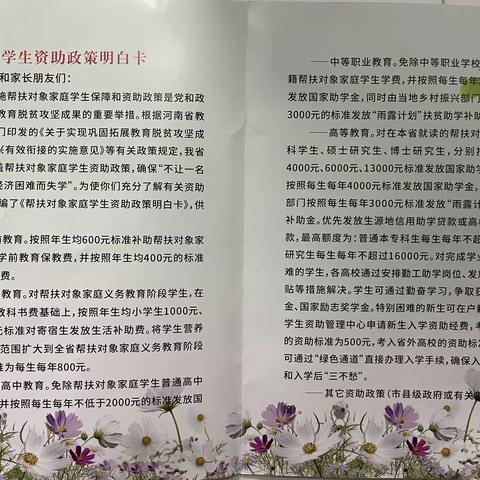 学生资助政策明白卡
和家长朋友们：
施帮扶对象家庭学生保障和资助政策是党和政
教育脱贫攻坚成果的重要举措。根据河南省教
门印发的《关于实现巩固拓展教育脱贫攻坚成
兴有效衔接的实施意见》等有关政策规定，我省
盖帮扶对象家庭学生资助政策，确保“不让一名
经济困难而失学”。为使你们充分了解有关资助
编了《帮扶对象家庭学生资助政策明白卡》，供
前教育。按照年生均600元标准补助帮扶对象家
学前教育保教费，并按照年生均400元的标准
费。
教育。对帮扶对象家庭义务教育阶段学生，在
教科书费基础上，按照年生均小学生1000元、
元标准对寄宿生发放生活补助费。将学生营养
范围扩大到全省帮扶对象家庭义务教育阶段
准为每生每年800元。
高中教育。免除帮扶对象家庭学生普通高中
并按照每生每年不低于2000元的标准发放国
——中等职业教育。免除中等职业学校
籍帮扶对象家庭学生学费，并按照每生每年
发放国家助学金，同时由当地乡村振兴部门
3000元的标准发放“雨露计划”扶贫助学补助
——高等教育。对在本省就读的帮扶对
科学生、硕士研究生、博士研究生，分别按
4000元、6000元、13000元标准发放国家助学金，
按照每生每年4000元标准发放国家助学金，
部门按照每生每年3000元标准发放“雨露计
补助金。优先发放生源地信用助学贷款或高校
款，最高额度为：普通本专科生每生每年不超
研究生每生每年不超过16000元。对完成学业
难的学生，各高校通过安排勤工助学岗位、发
贴等措施解决。学生可通过勤奋学习，争取获
金、国家励志奖学金。特别困难的新生可在户籍
学生资助管理中心申请新生入学资助经费，考
的资助标准为500元，考入省外高校的资助标
可通过“绿色通道”直接办理入学手续，确保入
和入学后“三不愁”。
——其它资助政策（市县级政府或有关